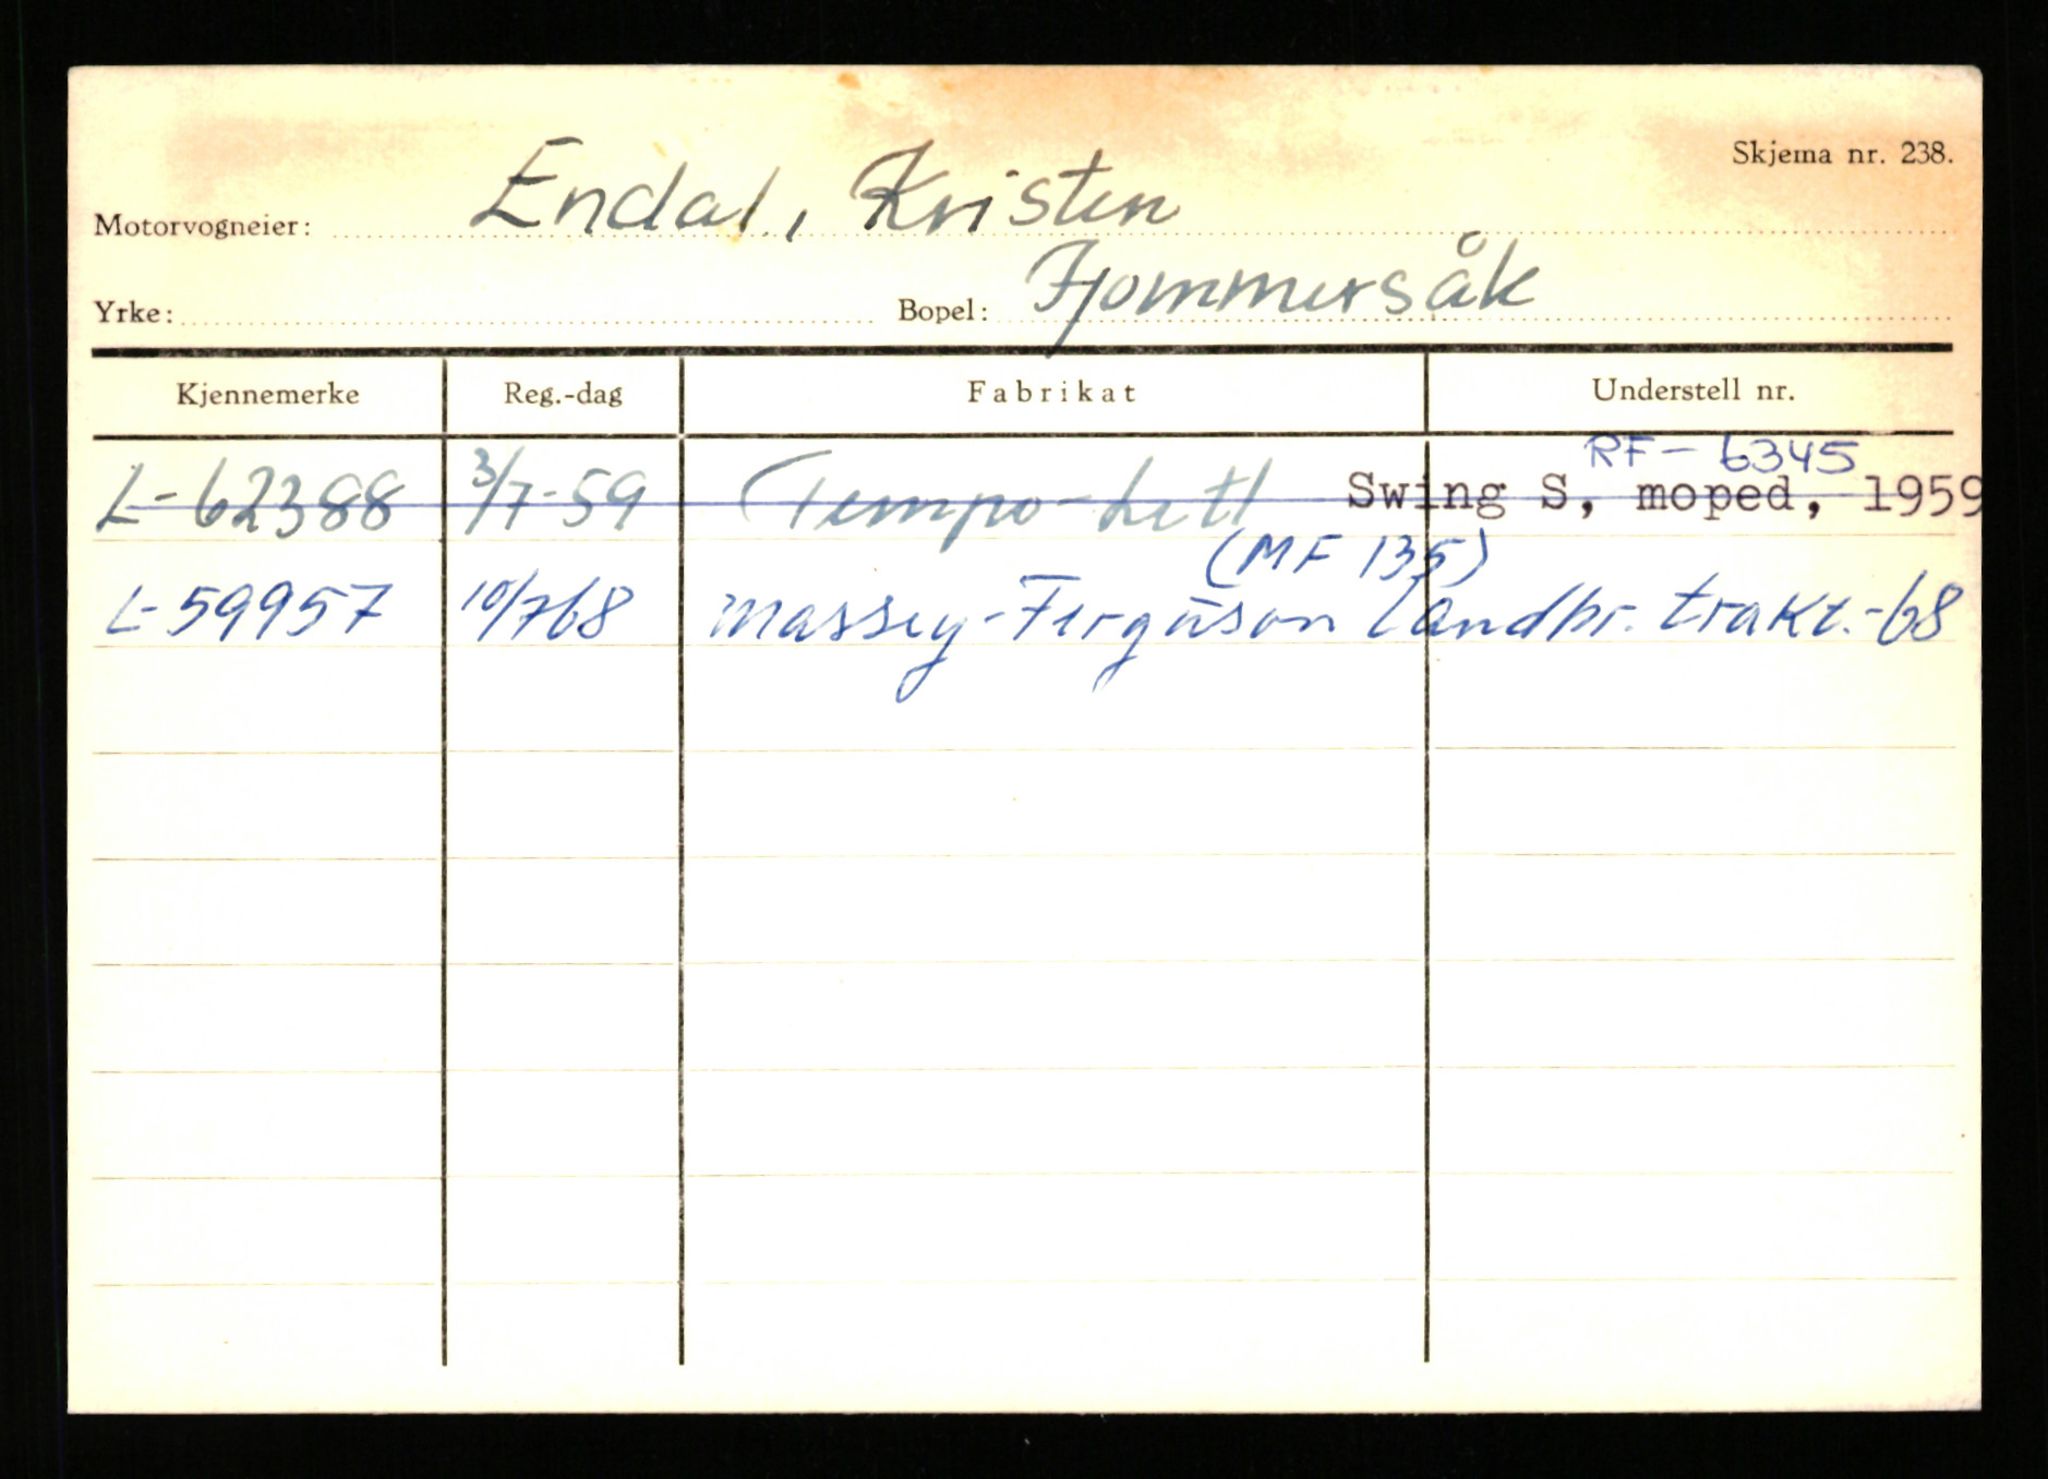 Skjema nr. 238.
Motorvogneier: Endal, Kristen
Yrke: Bopel: Hommersåk
Kjennemerke Reg.-dag Fabrikat Understell nr.
RF-6345
L-62388 3/7-59 (Tempo-Lett Swing S, moped, 1959
(MF 135)
L-59957 10/768 Massey-Ferguson Landbr. trakt.-68